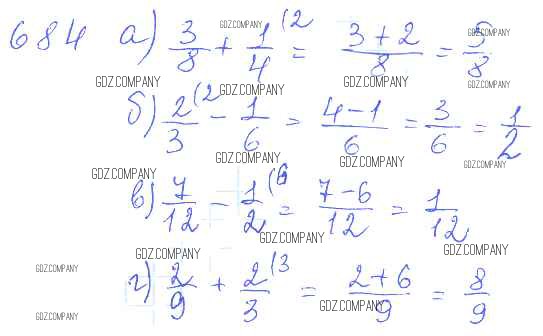 684 а) 3/8 + 1/4 (2 = (3+2)/8 = 5/8
б) 2/3 (2 − 1/6 = (4−1)/6 = 3/6 = 1/2
в) 7/12 − 1/2 (6 = (7−6)/12 = 1/12
г) 2/9 + 2/3 (3 = (2+6)/9 = 8/9
GDZ.COMPANY GDZ.COMPANY
GDZ.COMPANY GDZ.COMPANY GDZ.COMPANY
GDZ.COMPANY GDZ.COMPANY
GDZ.COMPANY GDZ.COMPANY GDZ.COMPANY
GDZ.COMPANY GDZ.COMPANY
GDZ.COMPANY GDZ.COMPANY
GDZ.COMPANY
GDZ.COMPANY GDZ.COMPANY